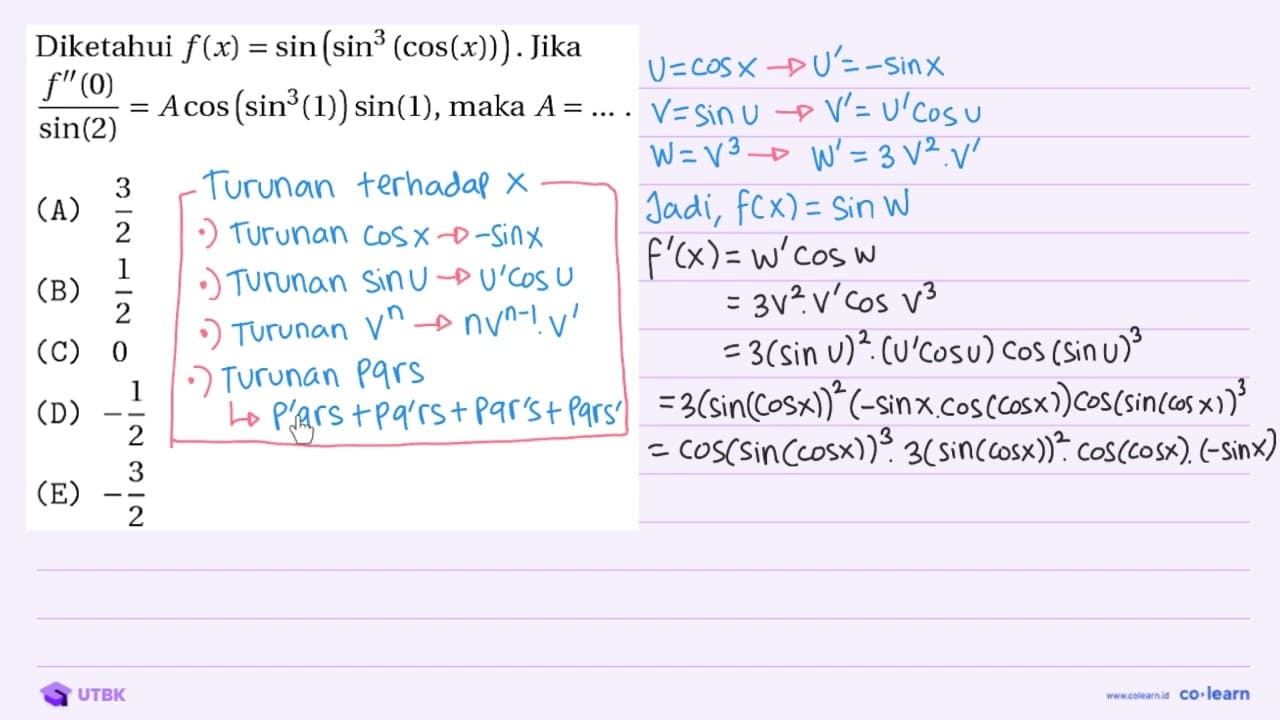 Diketahui f(x) = sin(sin³(cos(x))). Jika
f''(0)/sin(2) = A cos(sin³(1)) sin(1), maka A = ... .
(A) 3/2
(B) 1/2
(C) 0
(D) -1/2
(E) -3/2
Turunan terhadap x
•) Turunan cos x → -sin x
•) Turunan sin U → U' cos U
•) Turunan Vⁿ → nVⁿ⁻¹. V'
•) Turunan pqrs
↳ p'qrs + pq'rs + pqr's + pqrs'
U = cos x → U' = -sin x
V = sin U → V' = U' cos U
W = V³ → W' = 3 V². V'
Jadi, f(x) = sin W
f'(x) = W' cos W
= 3V². V' cos V³
= 3(sin U)². (U' cos U) cos (sin U)³
= 3(sin(cos x))² (-sin x. cos(cos x)) cos(sin(cos x))³
= cos(sin(cos x))³. 3(sin(cos x))². cos(cos x). (-sin x)
UTBK
www.colearn.id co·learn